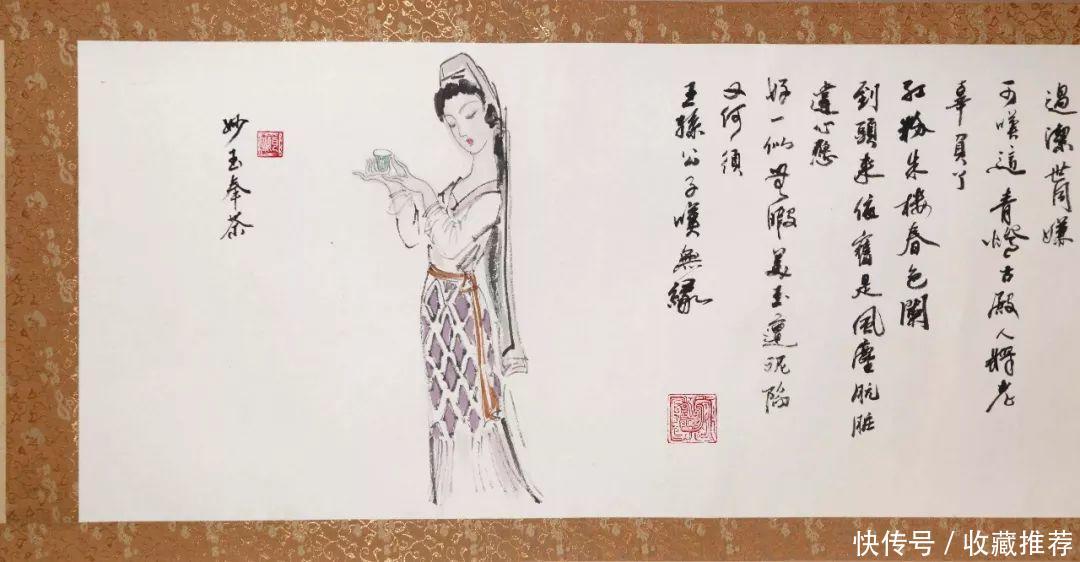 過潔世同嫌
可嘆這青燈古殿人將老
辜負了
紅粉朱樓春色闌
到頭來依舊是風塵肮脏
違心愿
好一似無瑕美玉遭泥陷
又何須
王孫公子嘆無緣
妙玉奉茶
快传号／收藏推荐